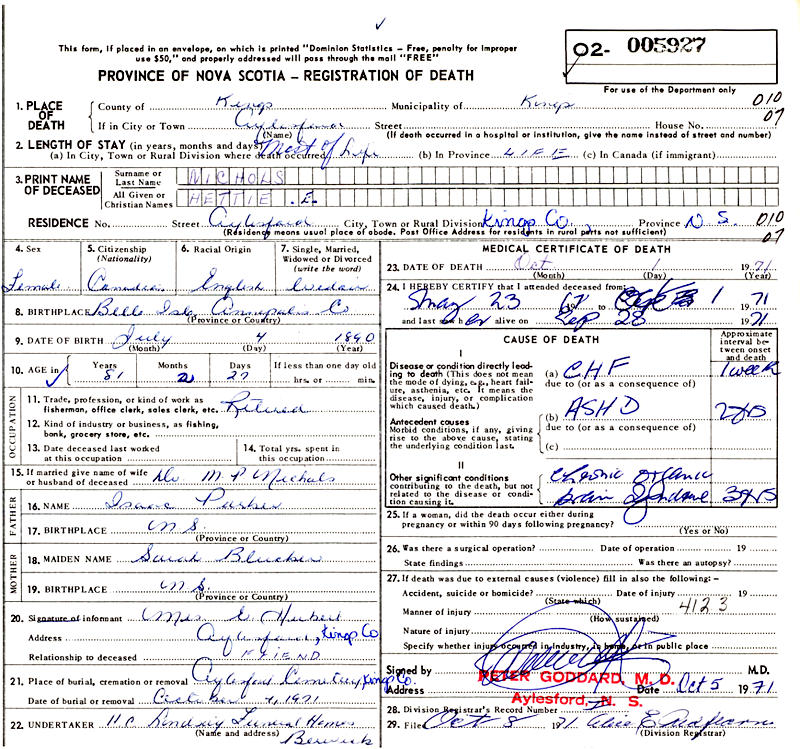 This form, if placed in an envelope, on which is printed "Dominion Statistics – Free, penalty for improper
use $50," and properly addressed will pass through the mail "FREE"
PROVINCE OF NOVA SCOTIA – REGISTRATION OF DEATH
02- 005927
For use of the Department only
1. PLACE OF DEATH
County of Kings Municipality of Kings 010
If in City or Town Aylesford Street House No. 07
(Name) (If death occurred in a hospital or institution, give the name instead of street and number)
2. LENGTH OF STAY (in years, months and days)
(a) In City, Town or Rural Division where death occurred Most of Life (b) In Province LIFE (c) In Canada (if immigrant)
3. PRINT NAME OF DECEASED
Surname or Last Name NICHOLS
All Given or Christian Names HETTIE .E.
RESIDENCE No. Street Aylesford City, Town or Rural Division Kings Co. Province N.S. 010
(Residency means usual place of abode. Post Office Address for residents in rural parts not sufficient) 07
4. Sex Female
5. Citizenship (Nationality) Canadian
6. Racial Origin English
7. Single, Married, Widowed or Divorced (write the word) Widow
8. BIRTHPLACE Belle Isle Annapolis Co
(Province or Country)
9. DATE OF BIRTH July 4 1890
(Month) (Day) (Year)
10. AGE in Years 81 Months 2 Days 27 If less than one day old hrs. or min.
OCCUPATION
11. Trade, profession, or kind of work as fisherman, office clerk, sales clerk, etc. Retired
12. Kind of industry or business, as fishing, bank, grocery store, etc.
13. Date deceased last worked at this occupation
14. Total yrs. spent in this occupation
15. If married give name of wife or husband of deceased Dr. M P Nichols
FATHER
16. NAME Isaac Parker
17. BIRTHPLACE N S.
(Province or Country)
MOTHER
18. MAIDEN NAME Sarah
19. BIRTHPLACE N S.
(Province or Country)
20. Signature of informant Mrs. E Hubert
Address Aylesford, Kings Co
Relationship to deceased FRIEND
21. Place of burial, cremation or removal Aylesford Cemetery, Kings Co.
Date of burial or removal October 4, 1971
22. UNDERTAKER H C Lindsay Funeral Homes
(Name and address) Berwick
MEDICAL CERTIFICATE OF DEATH
23. DATE OF DEATH Oct 1 1971
(Month) (Day)
24. I HEREBY CERTIFY that I attended deceased from:
May 23 67 to 1 1971
and last saw her alive on Sep 28 1971
CAUSE OF DEATH
Approximate interval between onset and death
I
Disease or condition directly leading to death (This does not mean the mode of dying, e.g., heart failure, asthenia, etc. It means the disease, injury, or complication which caused death.)
(a) CHF 1 week
due to (or as a consequence of)
Antecedent causes
Morbid conditions, if any, giving rise to the above cause, stating the underlying condition last.
(b) ASHD
due to (or as a consequence of)
(c)
II
Other significant conditions contributing to the death, but not related to the disease or condition causing it.
Chronic organic
brain syndrome 3 yrs
25. If a woman, did the death occur either during pregnancy or within 90 days following pregnancy?
(Yes or No)
26. Was there a surgical operation? Date of operation 19
State findings Was there an autopsy?
27. If death was due to external causes (violence) fill in also the following: –
Accident, suicide or homicide? Date of injury 19
(State which) 4123
Manner of injury
(How sustained)
Nature of injury
Specify whether injury occurred in industry, in home, or in public place
Signed by PETER GODDARD, M. D. M.D.
Address Aylesford, N. S. Date Oct 5 1971
28. Division Registrar's Record Number
29. Filed Oct 8 1971 Alice E.
(Division Registrar)